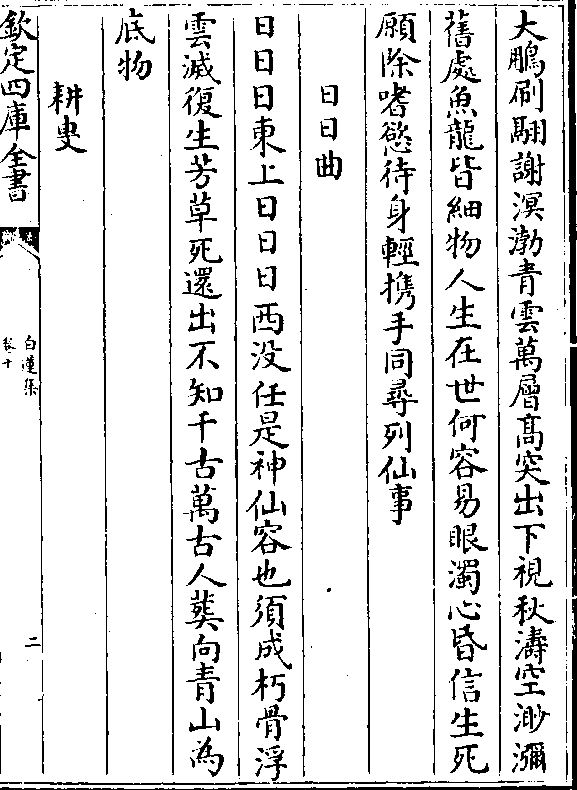 大鵬刷翮謝溟渤青雲萬層髙突出下視秋濤空渺瀰
舊處魚龍皆細物人生在世何容易眼濁心昏信生死
願除嗜慾待身輕携手同尋列仙事
日日曲
日日日東上日日日西没任是神仙容也須成朽骨浮
雲滅復生芳草死還出不知千古萬古人葬向青山為
底物
耕叟
欽定四庫全書
白蓮集
卷十
二